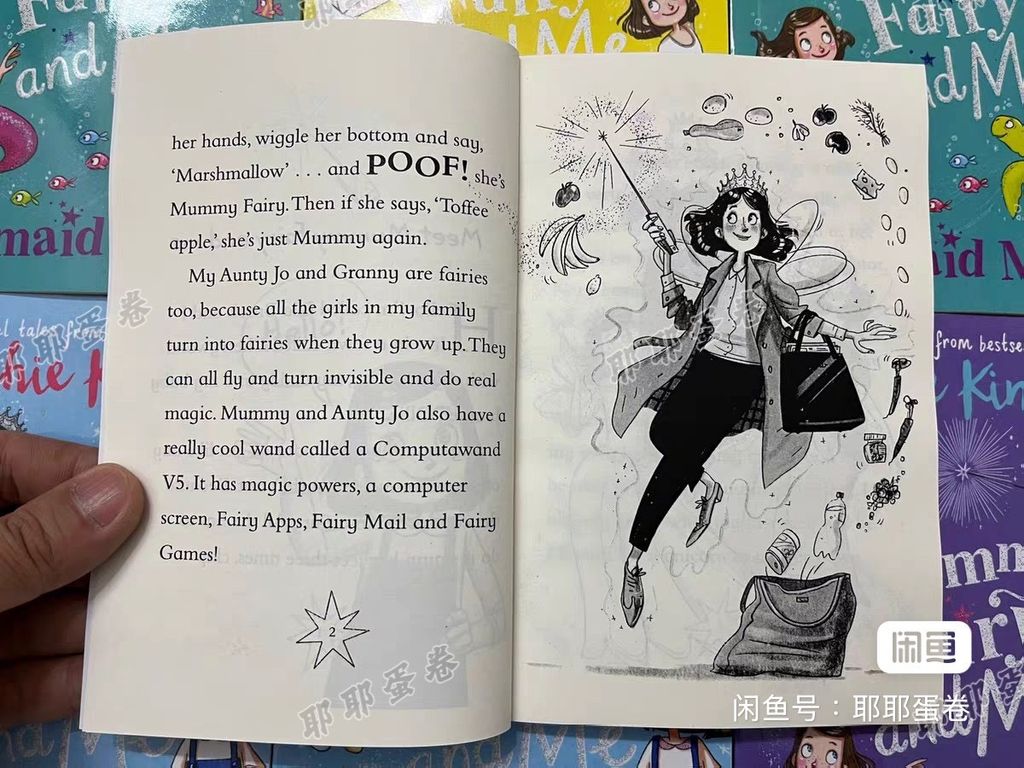 Fairy
and
Fairy
and Me
Fairy
and Me
her hands, wiggle her bottom and say,
‘Marshmallow’ . . . and POOF! she’s
Mummy Fairy. Then if she says, ‘Toffee
apple,’ she’s just Mummy again.
My Aunty Jo and Granny are fairies
too, because all the girls in my family
turn into fairies when they grow up. They
can all fly and turn invisible and do real
magic. Mummy and Aunty Jo also have a
really cool wand called a Computawand
V5. It has magic powers, a computer
screen, Fairy Apps, Fairy Mail and Fairy
Games!
2
maid
aid M
tales from
from bestse
Kin
耶耶蛋卷
耶耶蛋卷
耶耶蛋卷
耶耶蛋卷
耶耶蛋卷
闲鱼
闲鱼号：耶耶蛋卷